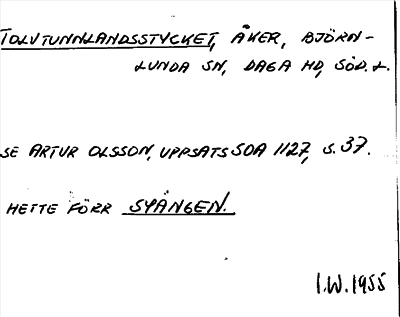 TOLVTUNNLANDSSTYCKET, ÅKER, BJÖRN-
LUNDA SN, DAGA HD, SÖD. L.
SE ARTUR OLSSON, UPPSATS SOA 1127, S. 37.
HETTE FÖRR SYÄNGEN.
I.W. 1955